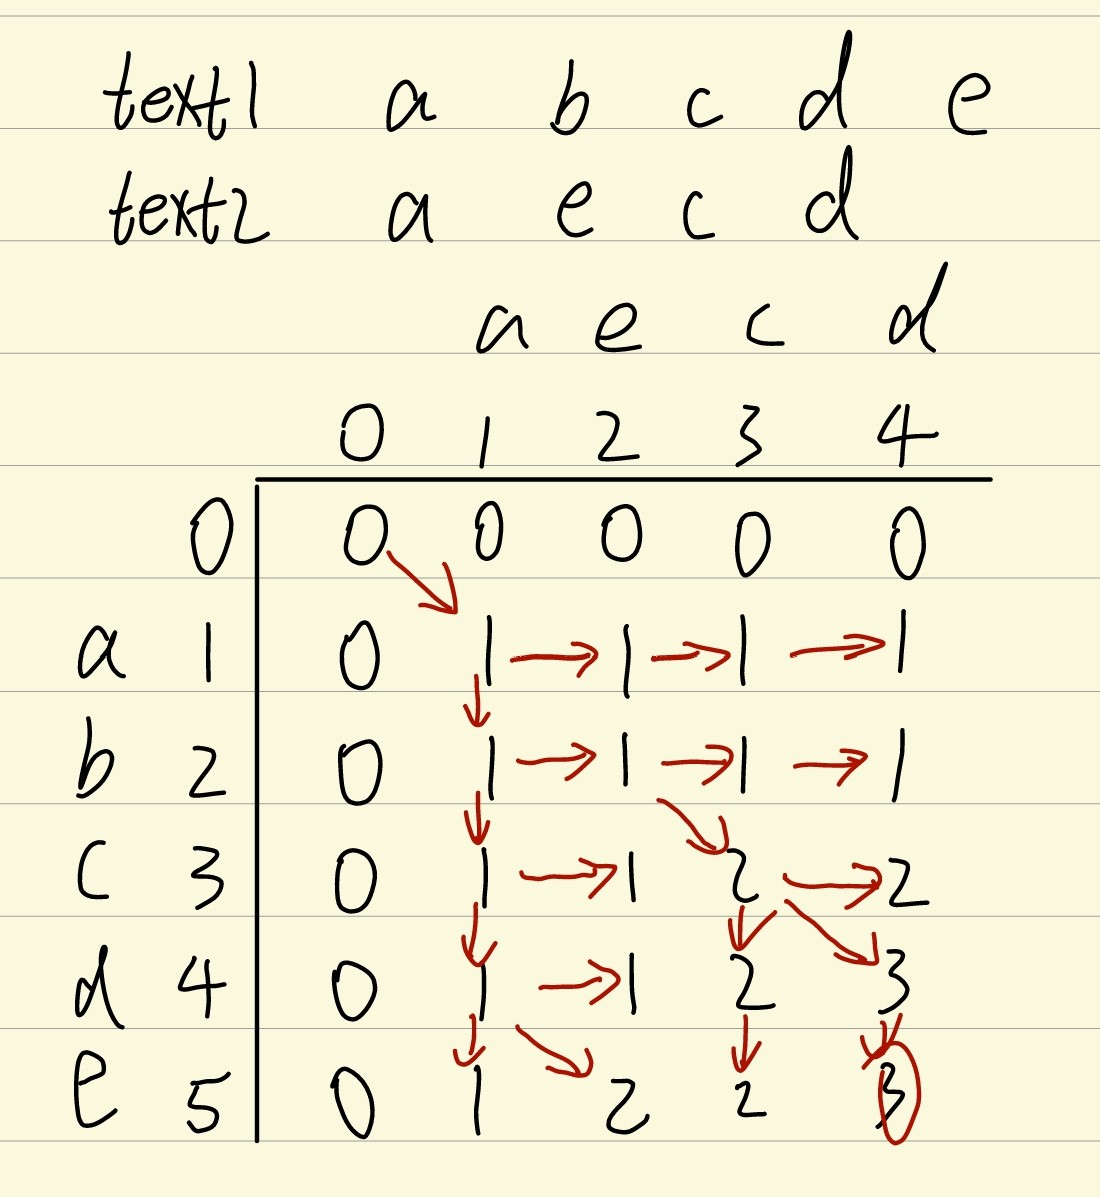 text1 a b c d e
text2 a e c d
a e c d
0 1 2 3 4
0 0 0 0 0 0
a 1 0 1 1 1 1
b 2 0 1 1 1 1
c 3 0 1 1 2 2
d 4 0 1 1 2 3
e 5 0 1 2 2 3